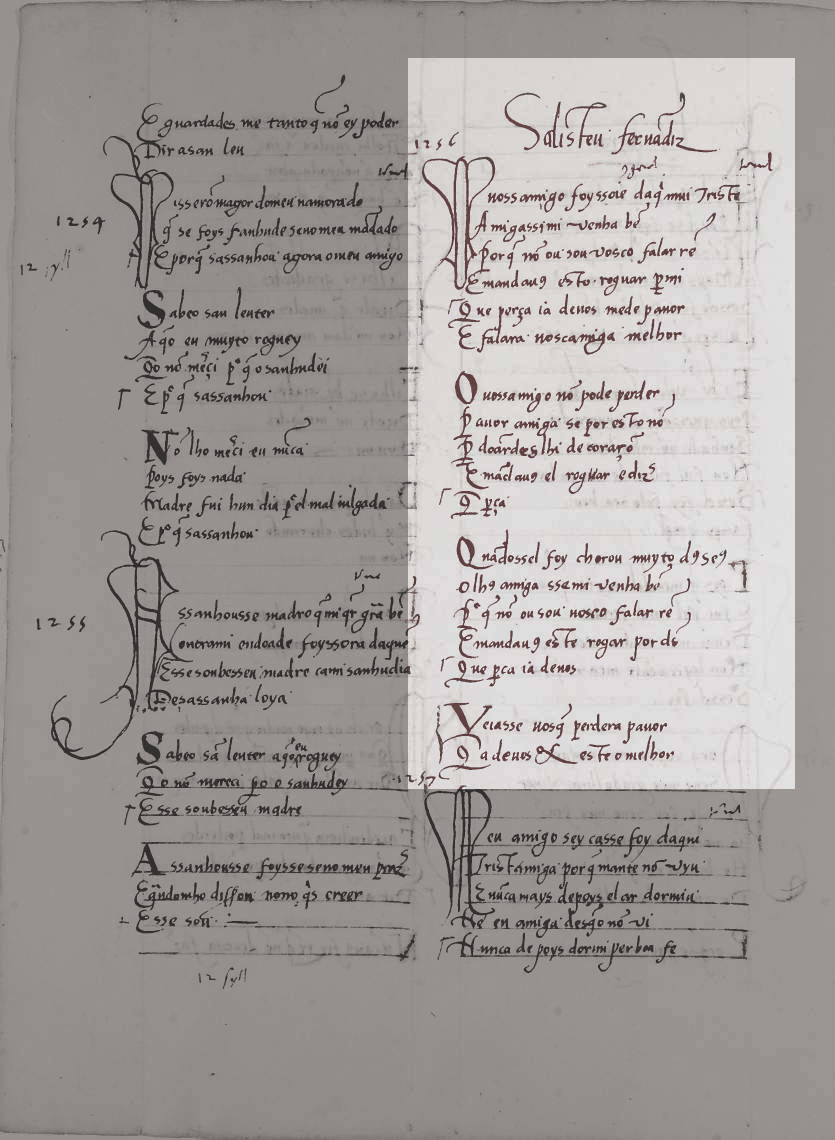 E guardades me tanto q̄ nō ey poder
Dirasan leu
1254
isserō magor domeu namorado
q̄ se foys sanhude senomeu mādado
E porq̄ sassanhou agora omeu amigo
12 syll
Sabeo san leuter
Aq̄o eu muyto roguey
Qo nō mēci p̄ q̄ o sanhudei
E p̄ q̄ sassanhou
Nō lho mēci eu mica
Poys foys nada
Madre fui hun dia pēl mal iulgada
E p̄ q̄ sassanhou
1255
ssanhousse madro q̄ mi q̄r grā bē
Contrami endoade foyssora daque
Esse soubesseu madre camisanhudia
Desassanha loya
Sabeo sā leuter aq̄o eu roguey
Qo nō mereci po o sanhudey
Esse soubesseu madre
Assanhousse foysse seno meu praz
E q̄ndomho dissōn nono q̄s creer
Esse son
12 syll
Salisteu fernādiz
1256
uossamigo foyssoie daq̄ mui Triste
Amigassimi venha bē
Porq̄ nō ousou vosco falar re
E mandau9 esto roguar p̄mi
Que perça ia deuos mede pauor
E falara uoscamiga melhor
O uossamigo nō pode perder
Pauor amiga se por esto nō
P̄doardeslhi de coraçō
E mādau9 el roguar e diz
Q̄ p̄ça
Quādossel foy chorou muyto d9se9
olh9 amiga ssemi venha bē
P̄ q̄ nō ousou uosco falar re
E mandau9 este rogar por ds
Que p̄ca ia deuos
Veiasse uosq̄ perdera pauor
Q̄ a deuos &ex este o melhor
1257
eu amigo sey casse foy daqui
Tristamiga porq̄ mante nō vyu
E nūca mays depoys el ar dormiu
Nē eu amiga desq̄o nō vi
Nunca depoys dormi per boa fe